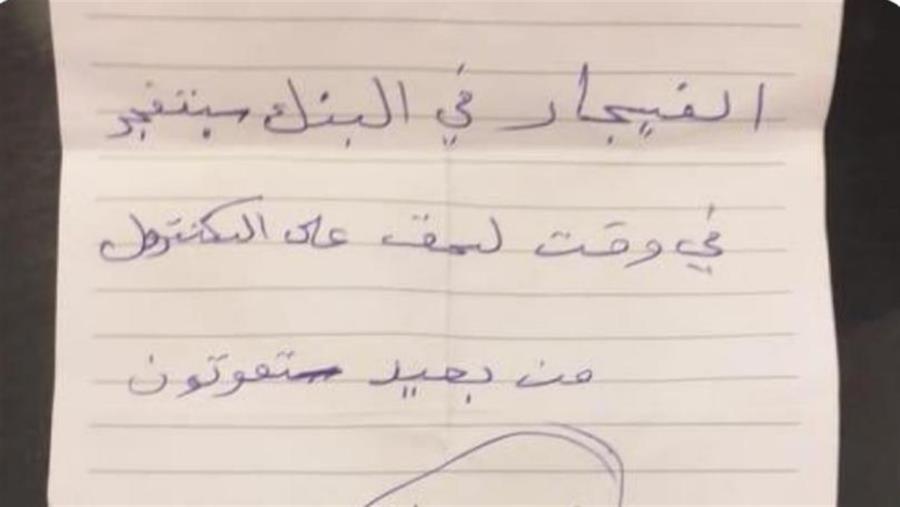 الفيجار في البنك ستنفجر
في وقت على الكنترول
من بعيد ستموتون